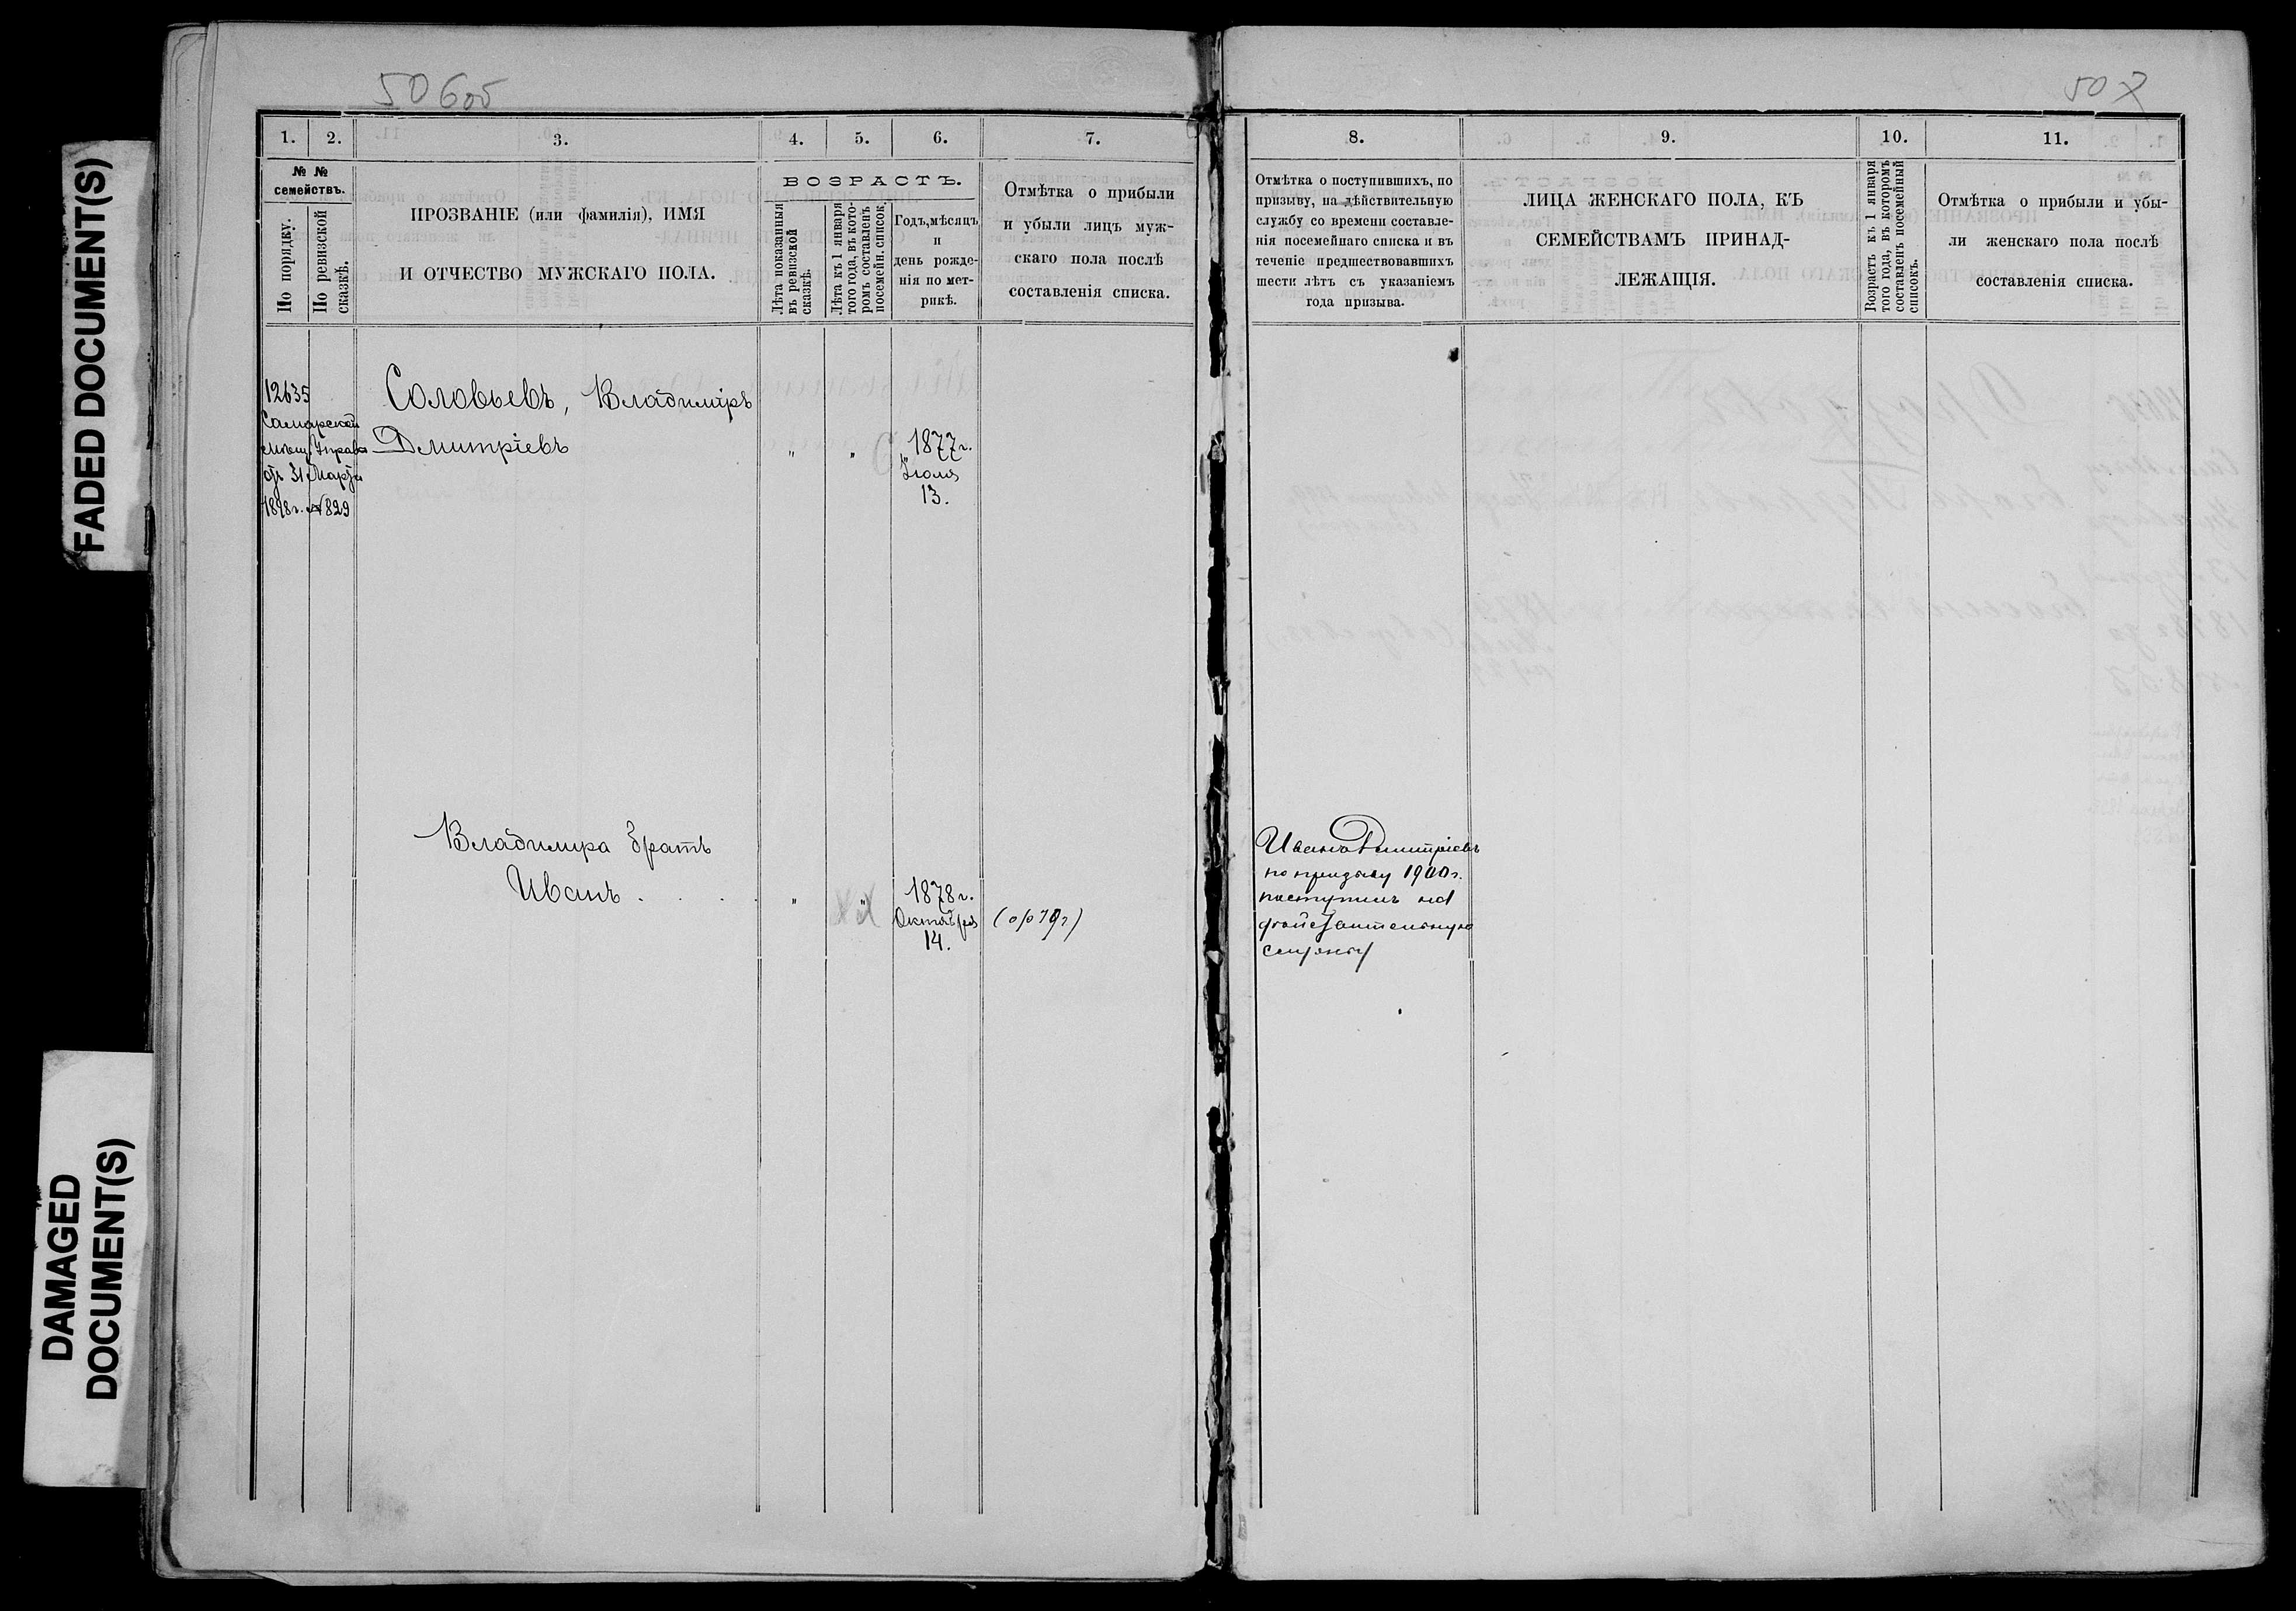 FADED DOCUMENT(S)
DAMAGED
DOCUMENT(S)
506об
507
1.
2.
3.
4.
5.
6.
7.
№ №
семействъ.
По порядку.
По ревизской
сказкѣ.
ПРОЗВАНІЕ (или фамилія), ИМЯ
И ОТЧЕСТВО МУЖСКАГО ПОЛА.
ВОЗРАСТЪ.
Лѣта показанныя
въ ревизской
сказкѣ.
Лѣта къ 1 января
того года, въ кото-
ромъ составленъ
посемейн. списокъ
Годъ, мѣсяцъ
и
день рожде-
нія по мет-
рикѣ.
Отмѣтка о прибыли
и убыли лицъ муж-
скаго пола послѣ
составленія списка.
12635
Самарской
мѣщ. Управы
отъ 31 Марта
1898г. №829
Соловьевъ, Владиміръ
Дмитріевъ
"
"
1877г.
Іюля
13.
Владимира братъ
Иванъ . . . .
"
"
1878г.
Октября
14.
8.
9.
10.
11.
Отмѣтка о поступившихъ, по
призыву, на дѣйствительную
службу со времени составле-
нія посемейнаго списка и въ
теченіе предшествовавшихъ
шести лѣтъ съ указаніемъ
года призыва.
ЛИЦА ЖЕНСКАГО ПОЛА, КЪ
СЕМЕЙСТВАМЪ ПРИНАД-
ЛЕЖАЩІЯ.
Возрастъ къ 1 января
того года, въ которомъ
составленъ посемейный
списокъ.
Отмѣтка о прибыли и убы-
ли женскаго пола послѣ
составленія списка.
Иванъ Дмитріевъ
по призыву 1900г.
поступилъ на
дѣйствительную
службу